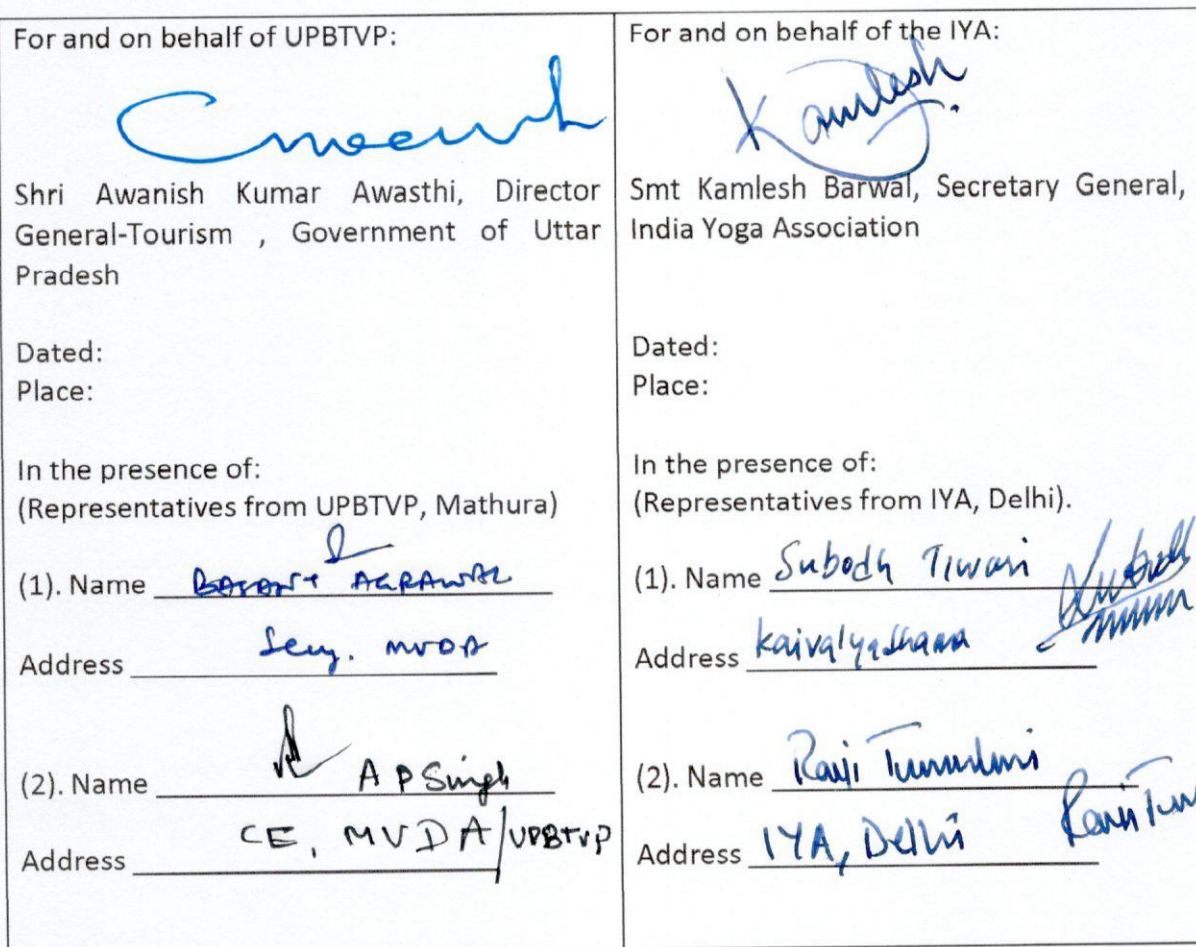 For and on behalf of UPBTVP:
Shri Awanish Kumar Awasthi, Director
General-Tourism , Government of Uttar
Pradesh
Dated:
Place:
In the presence of:
(Representatives from UPBTVP, Mathura)
(1). Name BASANT AGRAWAL
Address Secy. MVDA
(2). Name A P Singh
Address CE, MVDA/UPBTVP
For and on behalf of the IYA:
Kamlesh
Smt Kamlesh Barwal, Secretary General,
India Yoga Association
Dated:
Place:
In the presence of:
(Representatives from IYA, Delhi).
(1). Name Subodh Tiwari
Address Kaivalyadhama
(2). Name
Address IYA, Delhi